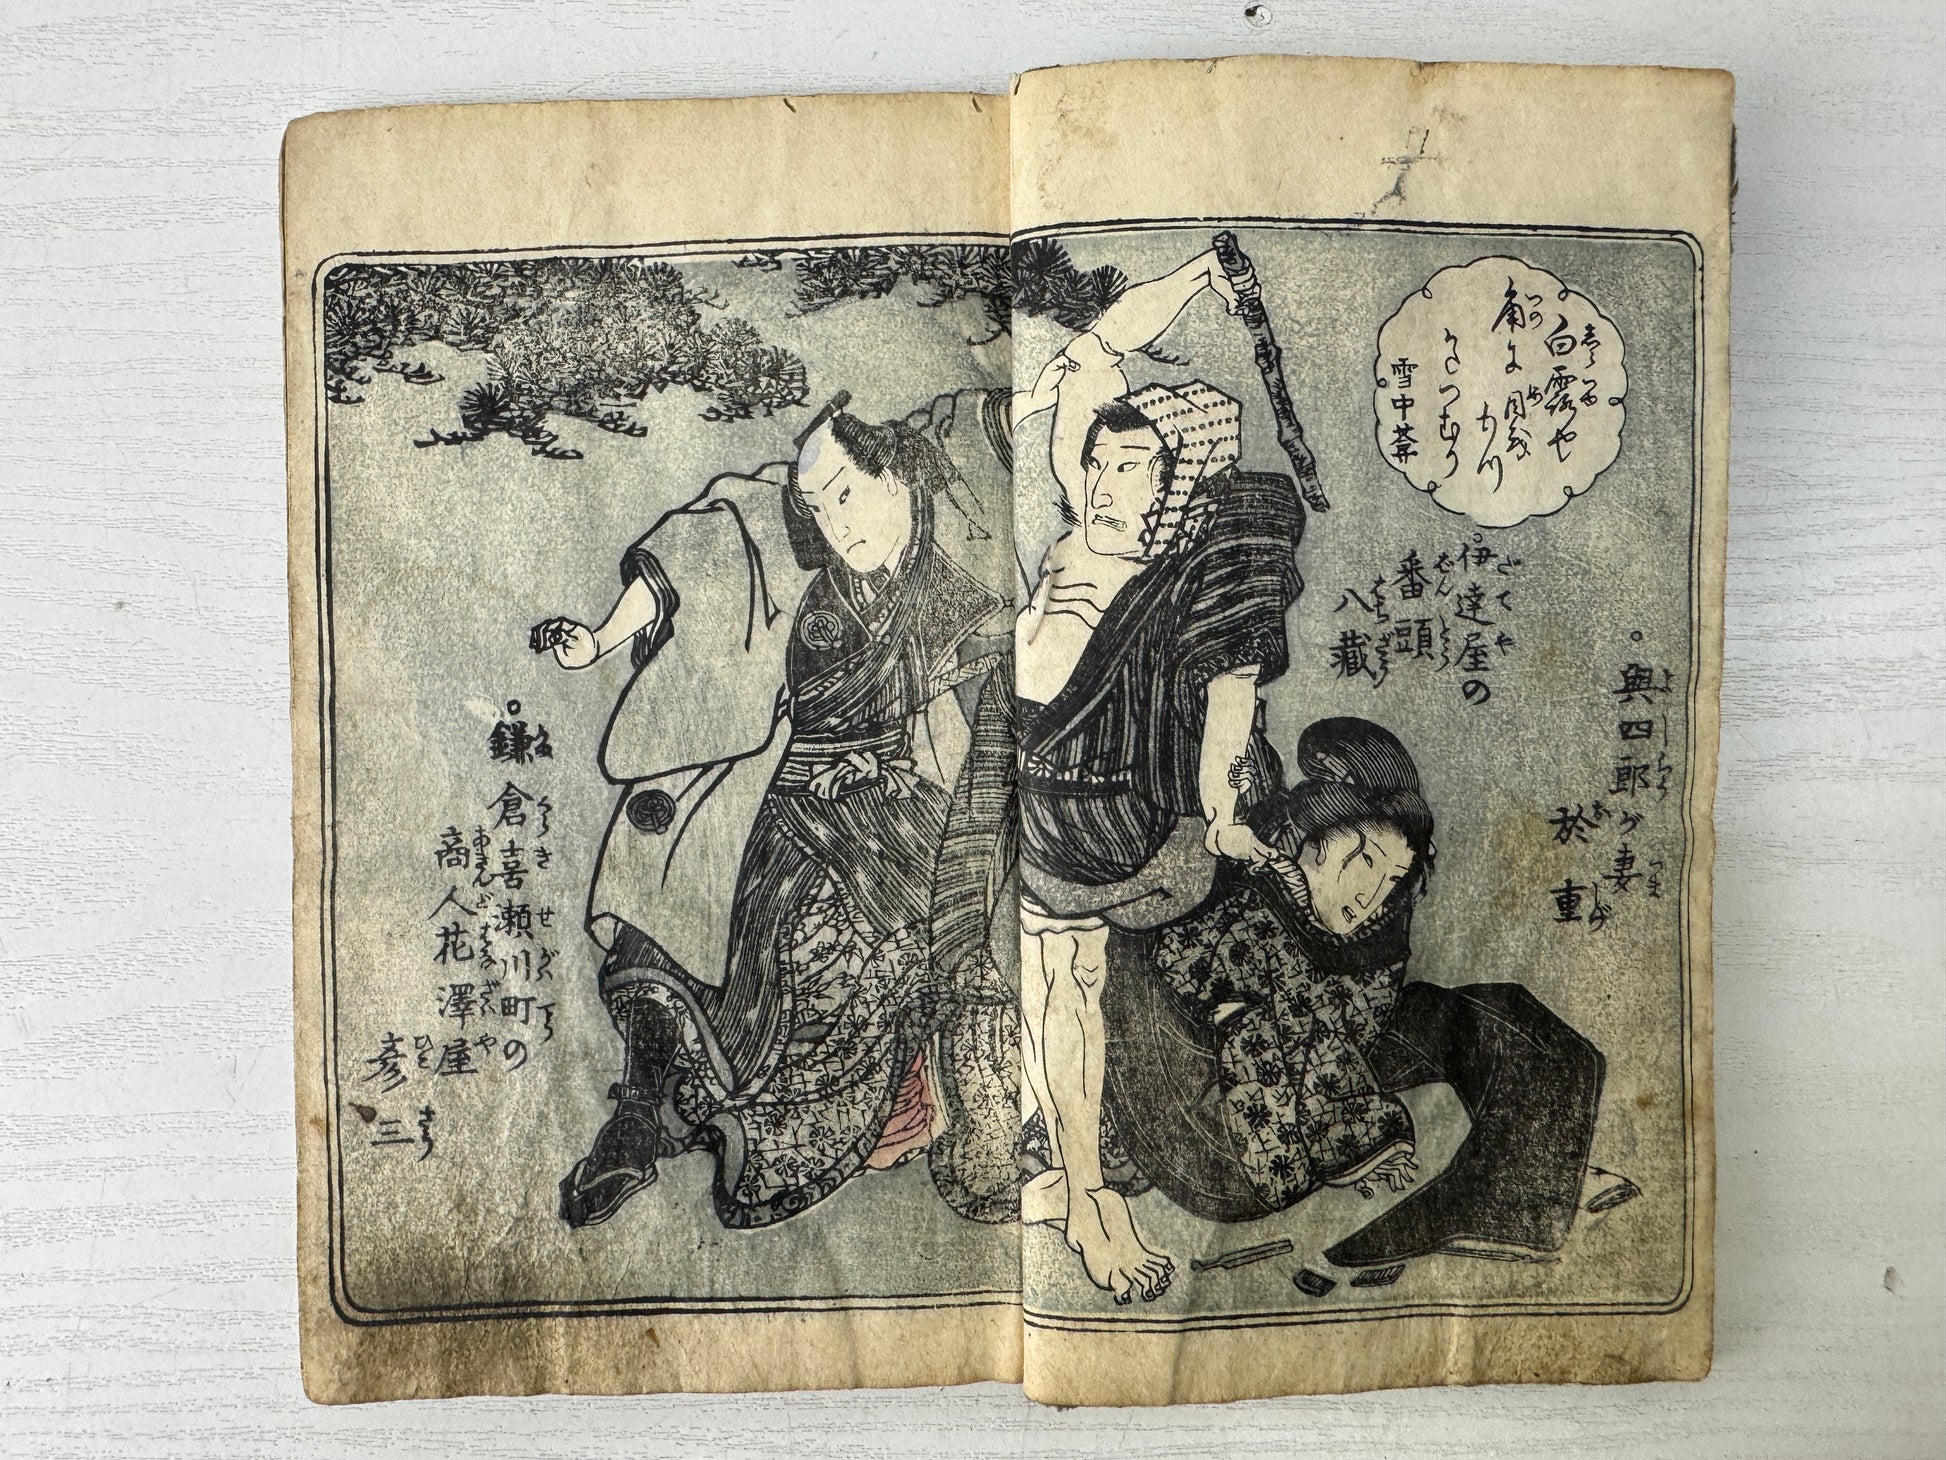 白露や
角に目を
もつ
かたつむり
雪中菴
伊達屋の
番頭
八藏
與四郎が妻
於重
鎌倉喜瀬川町の
商人花澤屋
彦三